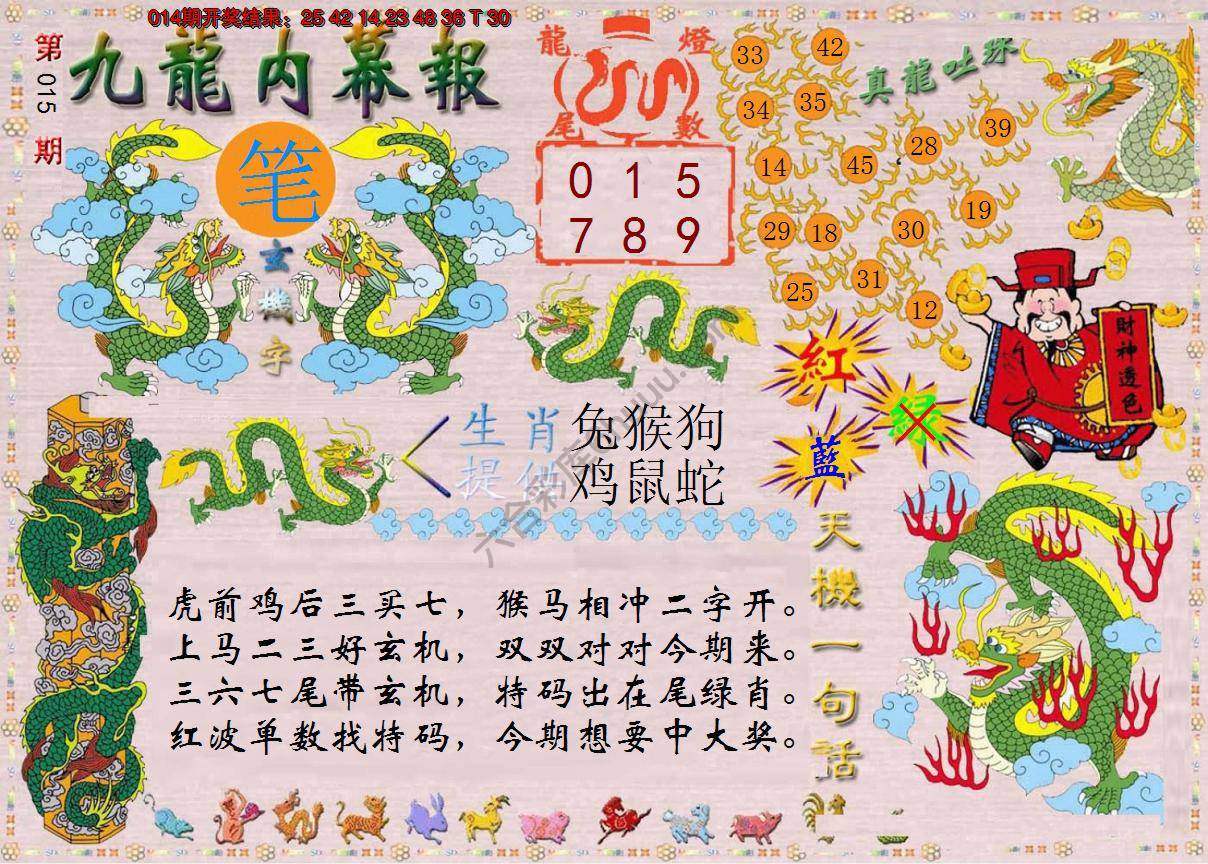 014期开奖结果：25 42 14 23 48 36 T 30
第015期
九龍内幕報
笔
玄機字
龍燈
尾數
0 1 5
7 8 9
真龍吐珠
33 42
34 35
14 45 28 39
29 18 30 19
25 31 12
財神透色
紅
绿
藍
生肖 兔猴狗
提供 鸡鼠蛇
天機一句話
虎前鸡后三买七，猴马相冲二字开。
上马二三好玄机，双双对对今期来。
三六七尾带玄机，特码出在尾绿肖。
红波单数找特码，今期想要中大奖。